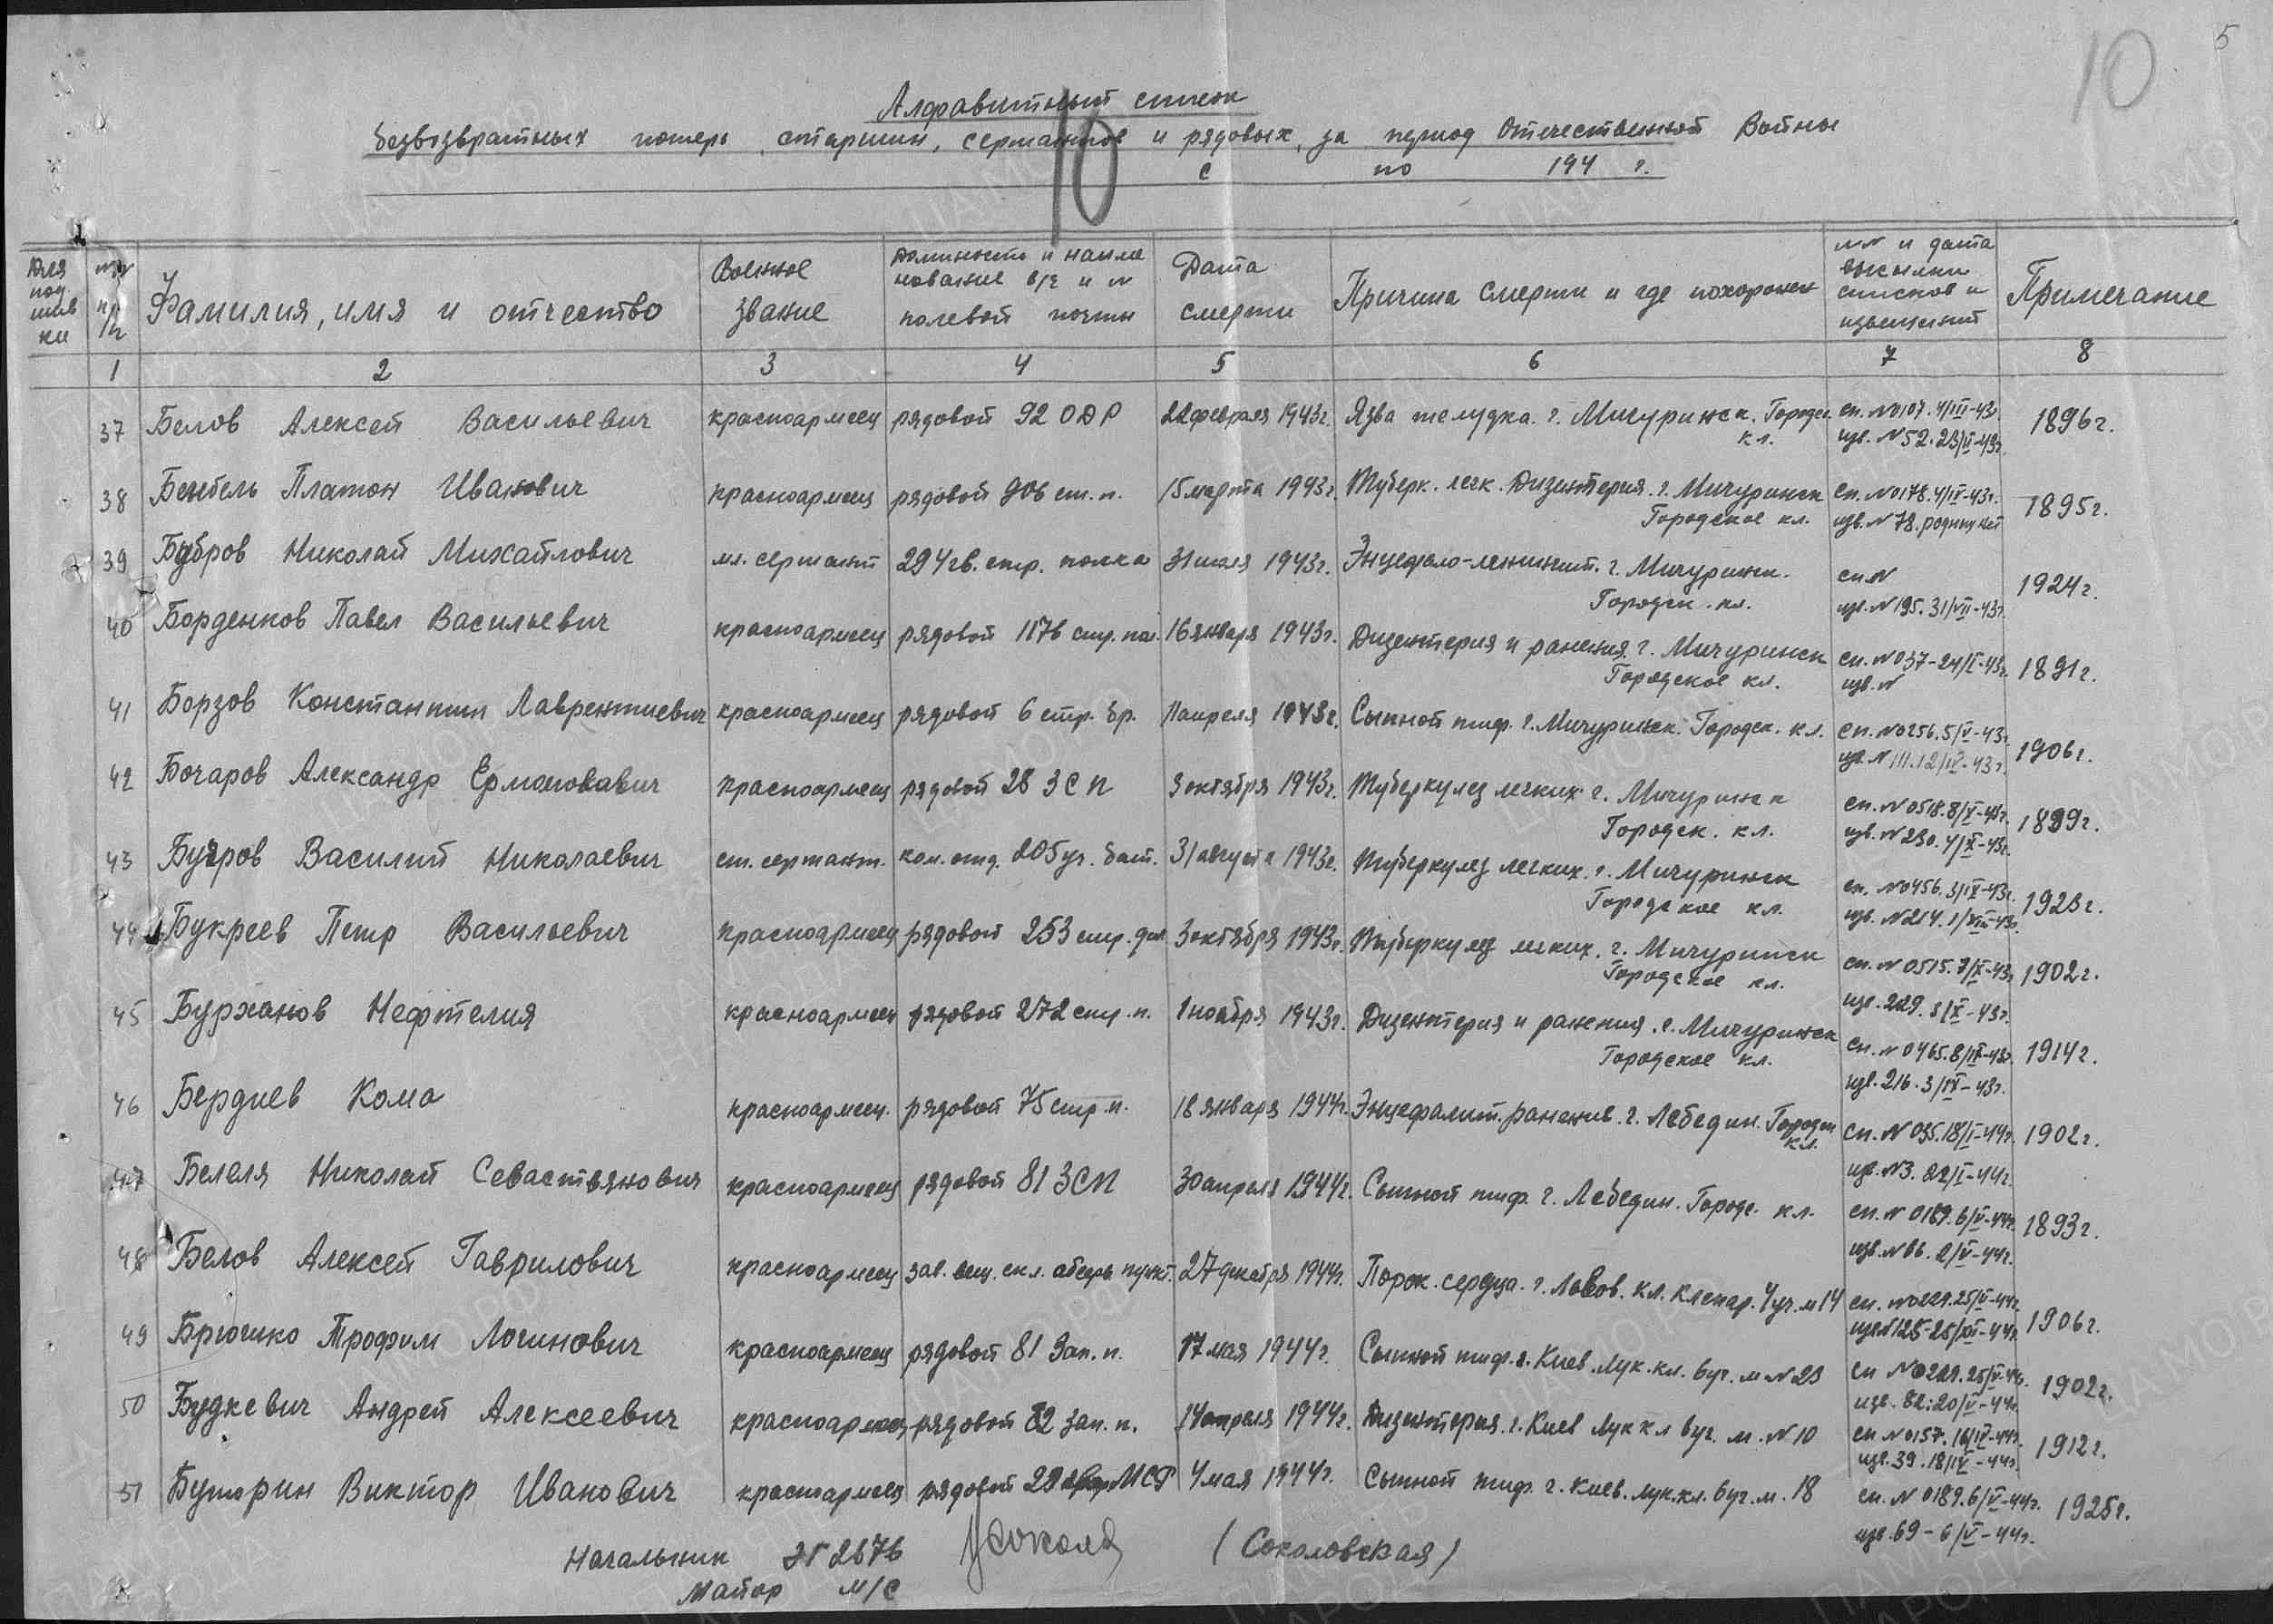 5
10
Алфавитный список
безвозвратных потерь старшин, сержантов и рядовых, за период Отечественной Войны
10
с по 194 г.
Для подшивки
№№ п/п
Фамилия, имя и отчество
Военное звание
Должность и наименование в/ч и № полевой почты
Дата смерти
Причина смерти и где похоронен
№№ и дата высылки списков и извещений
Примечание
1 2 3 4 5 6 7 8
37 Белов Алексей Васильевич красноармеец рядовой 92 ОДР 22 февраля 1943г. Язва желудка. г. Мичуринск. Городск. кл. сп. №0107. 4/III-43г. 1896г.
изв. №52. 23/II-43г.
38 Бембель Платон Иванович красноармеец рядовой 906 ст. п. 15 марта 1943г. Туберк. легк. Дизентерия. г. Мичуринск сп. №0178. 4/IV-43г. 1895г.
Городское кл. изв. №78. родных нет
39 Бобров Николай Михайлович мл. сержант 294 гв. стр. полка 31 июля 1943г. Энцефало-менингит. г. Мичуринск. сп. № 1924г.
Городск. кл. изв. №195. 31/VII-43г.
40 Борденков Павел Васильевич красноармеец рядовой 1176 стр. пол. 16 января 1943г. Дизентерия и ранения. г. Мичуринск сп. №037-24/I-43г. 1891г.
Городское кл. изв. №
41 Борзов Константин Лаврентиевич красноармеец рядовой 6 стр. бр. 11 апреля 1943г. Сыпной тиф. г. Мичуринск. Городск. кл. сп. №0256. 5/V-43г. 1906г.
изв. №111. 12/IV-43г.
42 Бочаров Александр Ермолавич красноармеец рядовой 28 ЗСП 3 октября 1943г. Туберкулез легких г. Мичуринск сп. №0518. 8/X-43г. 1899г.
Городск. кл. изв. №230. 4/X-43г.
43 Бугров Василий Николаевич ст. сержант. ком. отд. 205 уч. бат. 31 августа 1943г. Туберкулез легких. г. Мичуринск сп. №0456. 3/IX-43г. 1923г.
Городское кл. изв. №214. 1/VIII-43г.
44 Букреев Петр Васильевич красноармеец рядовой 253 стр. див. 3 октября 1943г. Туберкулез легких. г. Мичуринск сп. №0515. 7/X-43г. 1902г.
Городское кл. изв. 229. 3/X-43г.
45 Бурханов Нефтелия красноармеец рядовой 272 стр. п. 1 ноября 1943г. Дизентерия и ранения. г. Мичуринск сп. №0465. 8/IX-43г. 1914г.
Городское кл. изв. 216. 3/IX-43г.
46 Бердиев Кома красноармеец. рядовой 75 стр. п. 18 января 1944г. Энцефалит. ранение. г. Лебедин. Городск кл. сп. №035. 18/I-44г. 1902г.
изв. №3. 22/I-44г.
47 Белеля Николай Севастянович красноармеец рядовой 81 ЗСП 30 апреля 1944г. Сыпной тиф. г. Лебедин. Городс. кл. сп. №0189. 6/V-44г. 1893г.
изв. №66. 2/V-44г.
48 Белов Алексей Гаврилович красноармеец зав. вещ. скл. обсерв. пункт. 27 декабря 1944г. Порок сердца. г. Львов. кл. Клепар. 4 уч. м 14 сп. №0229. 25/V-44г. 1906г.
изв №125-25/XII-44г.
49 Брюшко Трофим Логинович красноармеец рядовой 81 Зап. п. 17 мая 1944г. Сыпной тиф. г. Киев. Лук. кл. 6 уч. м №23 сп №0229. 25/V-44г. 1902г.
изв. 82. 20/V-44г.
50 Будкевич Андрей Алексеевич красноармеец рядовой 82 зап. п. 14 апреля 1944г. Дизентерия. г. Киев Лук кл 6 уч. м. №10 сп №0157. 16/IV-44г. 1912г.
изв. 39. 18/IV-44г.
51 Буторин Виктор Иванович красноармеец рядовой 29 МСР 4 мая 1944г. Сыпной тиф. г. Киев. лук. кл. 6 уч. м. 18 сп. №0189. 6/V-44г. 1925г.
изв. 69-6/V-44г.
Начальник ЭГ 2676 (Соколовская)
Майор м/с